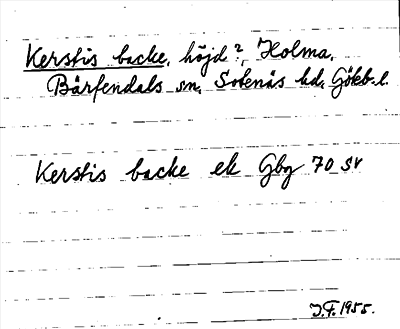 Kerstis backe, höjd?, Holma,
Bärfendals sn, Sotenäs hd, Götebl.
Kerstis backe ek Gbg 70 SV
J.F. 1955.